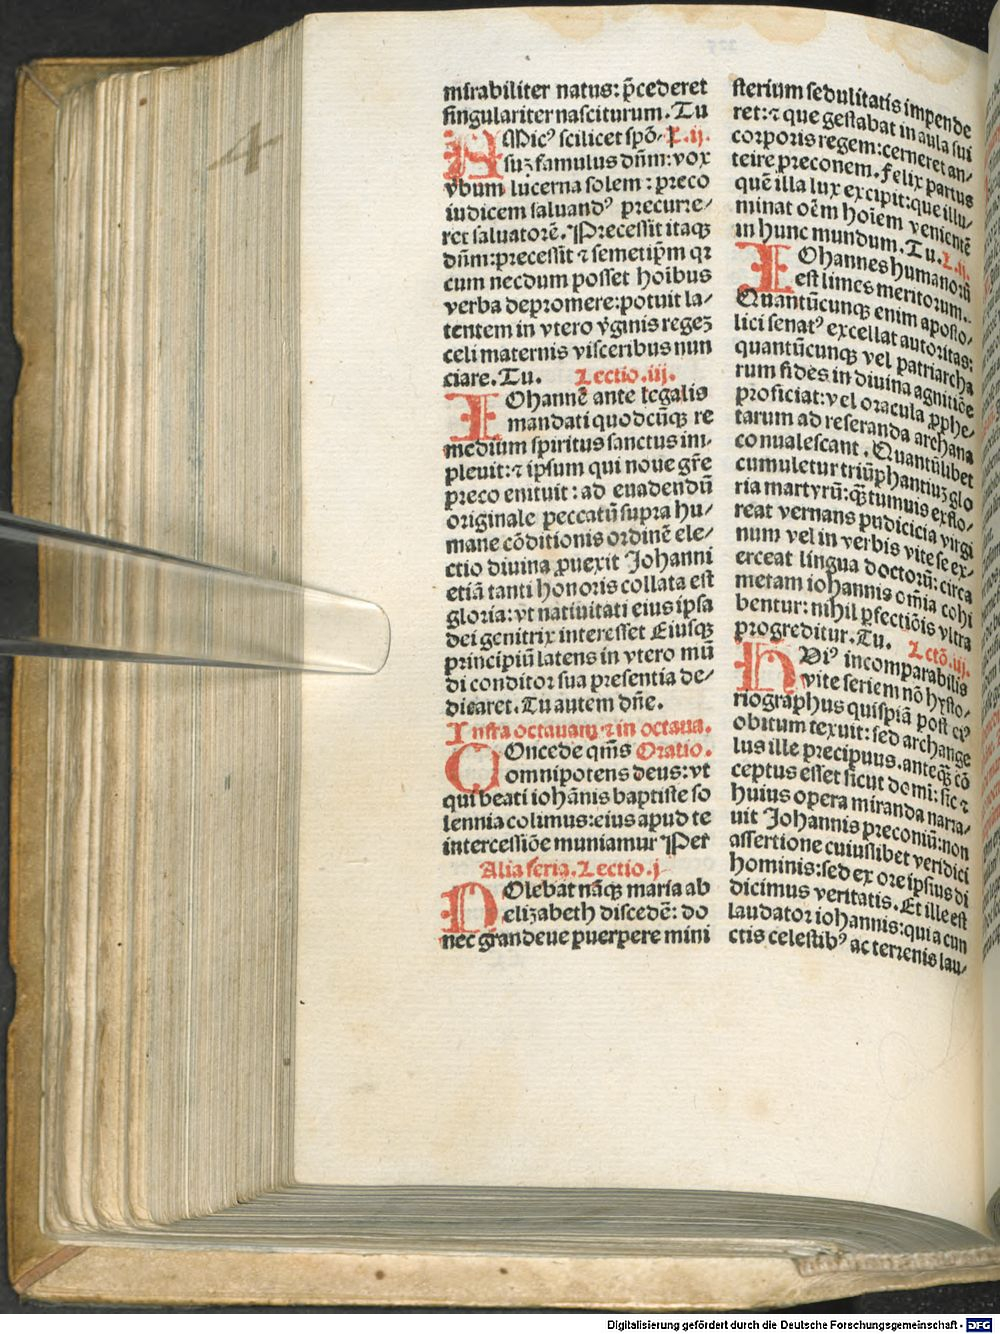 mirabiliter natus: p̄cederet
singulariter nasciturum. Tu
AMicꝰ scilicet spō- L.ij.
suꝫ famulus dñm: vox
v̓bum lucerna solem: preco
iudicem saluandꝰ precurre⸗
ret saluatorē. Precessit itaqꝫ
dñm: precessit ⁊ semetip̄m qꝛ
cum necdum posset hoībus
verba depromere: potuit la⸗
tentem in vtero v̓ginis regeꝫ
celi maternis visceribus nun
ciare. Tu. Lectio.iij.
IOhannē ante legalis
mandati quodcūqꝫ re
medium spiritus sanctus im⸗
pleuit: ⁊ ipsum qui noue gr̄e
p̄reco enituit: ad euadendū
originale peccatū supra hu⸗
mane cōditionis ordinē ele⸗
ctio diuina ꝓuexit Johanni
etiā tanti honoris collata est
gloria: vt natiuitati eius ipsa
dei genitrix interesset Eiusqꝫ
principiū latens in vtero mū
di conditor sua presentia de⸗
dicaret. Tu autem dñe.
Infra octauam ⁊ in octaua.
COncede qm̄s Oratio.
omnipotens deus: vt
qui beati iohānis baptiste so
lennia colimus: eius apud te
intercessiōe muniamur Per
Alia feria. Lectio.j
NOlebat nāqꝫ maria ab
elizabeth discedē: do
nec grandeue puerpere mini
sterium sedulitatis impende
ret: ⁊ que gestabat in aula sui
corporis regem: cerneret an⸗
teire preconem. Felix partus
quē illa lux excipit: que illu⸗
minat oēm hoīem venientē
in hunc mundum. Tu. L.ij.
IOhannes humanorū
est limes meritorum.
Quantūcunqꝫ enim aposto⸗
lici senatꝰ excellat autoritas:
quantūcunqꝫ vel patriarcha
rum fides in diuina agnitiōe
proficiat: vel oracula ꝓphe⸗
tarum ad reseranda archana
conualescant. Quantūlibet
cumuletur triūphantiuꝫ glo
ria martyrū: qꝫtumuis exflo⸗
reat vernans pudicicia virgi
num vel in verbis vite se ex⸗
erceat lingua doctorū: circa
metam iohannis om̄ia cohi
bentur: nihil ꝑfectiōis vltra
progreditur. Tu. Lctō.iij.
HViꝰ incomparabilis
vite seriem nō hysto⸗
riographus quispiā post eiꝰ
obitum texuit: sed archange
lus ille precipuus. anteqꝫ cō
ceptus esset sicut domi: sic ⁊
huius opera miranda narra⸗
uit Johannis preconiū: non
assertione cuiuslibet veridici
hominis: sed ex ore ipsius di
dicimus veritatis. Et ille est
laudator iohannis: qui a cun
ctis celestibꝰ ac terrenis lau⸗
4
Digitalisierung gefördert durch die Deutsche Forschungsgemeinschaft - DFG